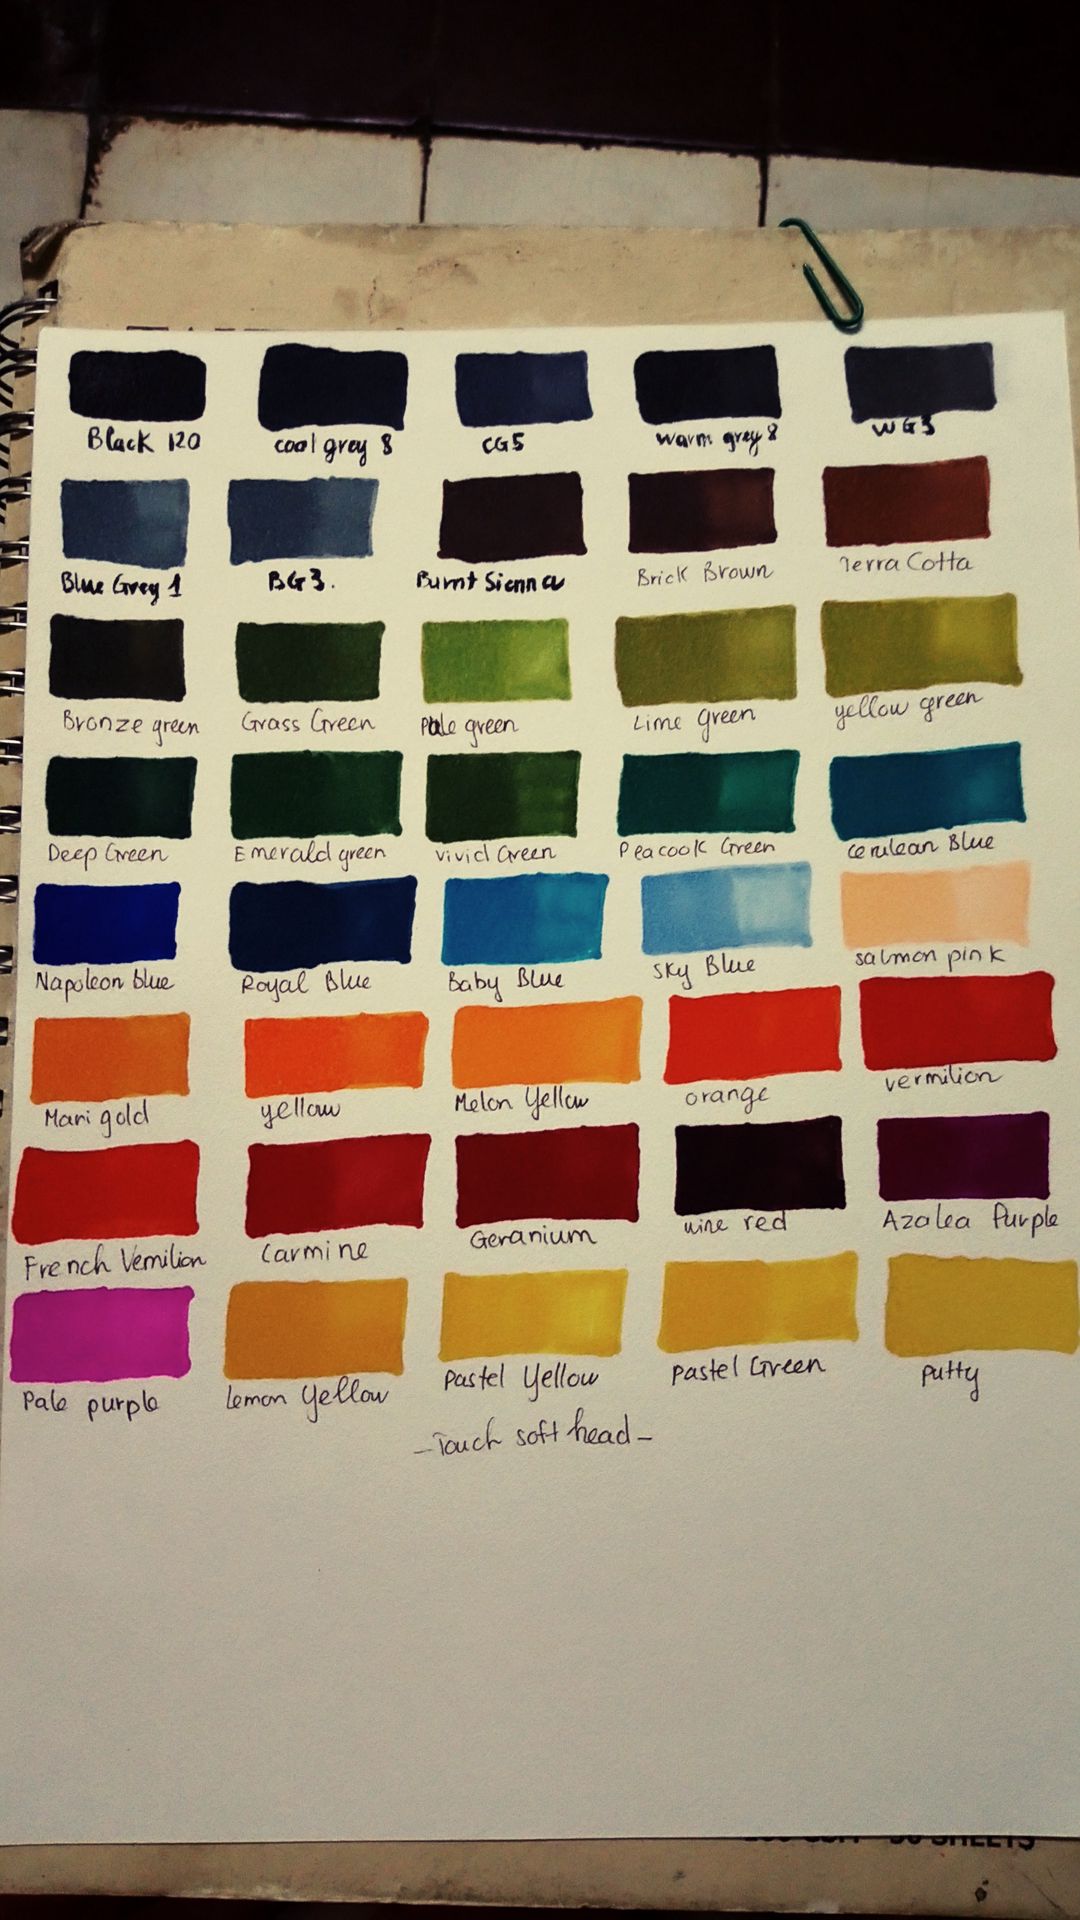 Black 120 cool grey 8 CG5 warm grey 8 WG3
Blue Grey 1 BG3. Burnt Sienna Brick Brown Terra Cotta
Bronze green Grass Green Pale green Lime Green yellow green
Deep Green Emerald green vivid Green Peacook Green cerulean Blue
Napoleon blue Royal Blue Baby Blue Sky Blue salmon pink
Mari gold yellow Melon Yellow orange vermilion
French Vemilion Carmine Geranium wine red Azalea Purple
Pale purple lemon Yellow pastel Yellow pastel Green putty
-Touch soft head-
SHEETS